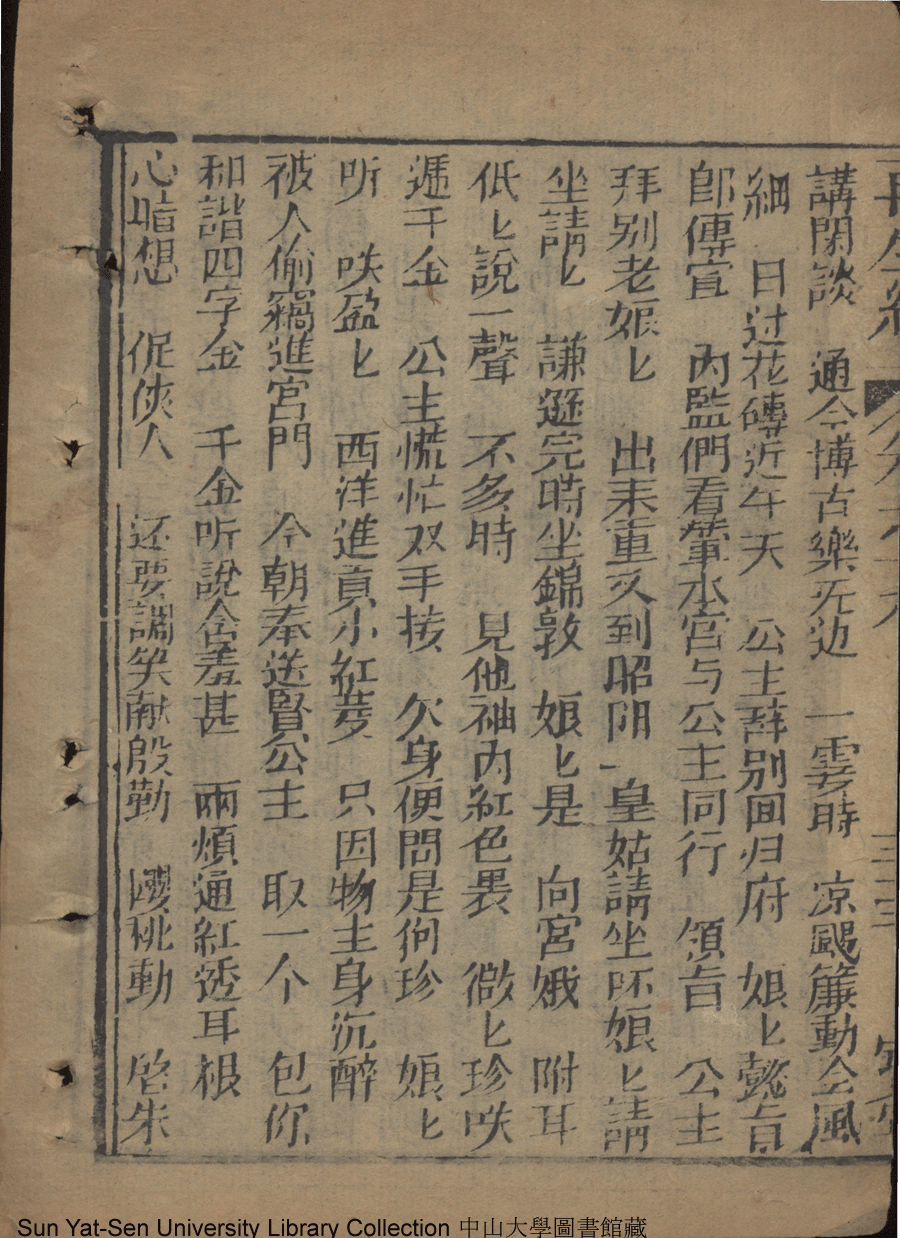 講閑談　通今博古樂无边　一霎時　凉颸簾動会風
細　日过花磚近午天　公主辞别回归府　娘匕懿旨
即傳宣　内監們看輦水宫与公主同行　領旨　公主
拜别老娘匕　出来重又到昭阳　皇姑請坐呀娘匕請
坐請匕　謙遜完時坐錦敦　娘匕是　向宫娥　附耳
低匕說一聲　不多時　見他袖内紅色畏　微匕珍咲
遞千金　公主慌忙双手接　欠身便問是何珍　娘匕
听　咲盈匕　西洋進貢小紅菱　只因物主身沉醉
被人偷竊進宫門　今朝奉送賢公主　取一个　包你
和諧四字金　千金听說含羞甚　兩煩通紅透耳根
心暗想　促俠人　还要調笑献殷勤　櫻桃動　启朱
Sun Yat-Sen University Library Collection 中山大學圖書館藏